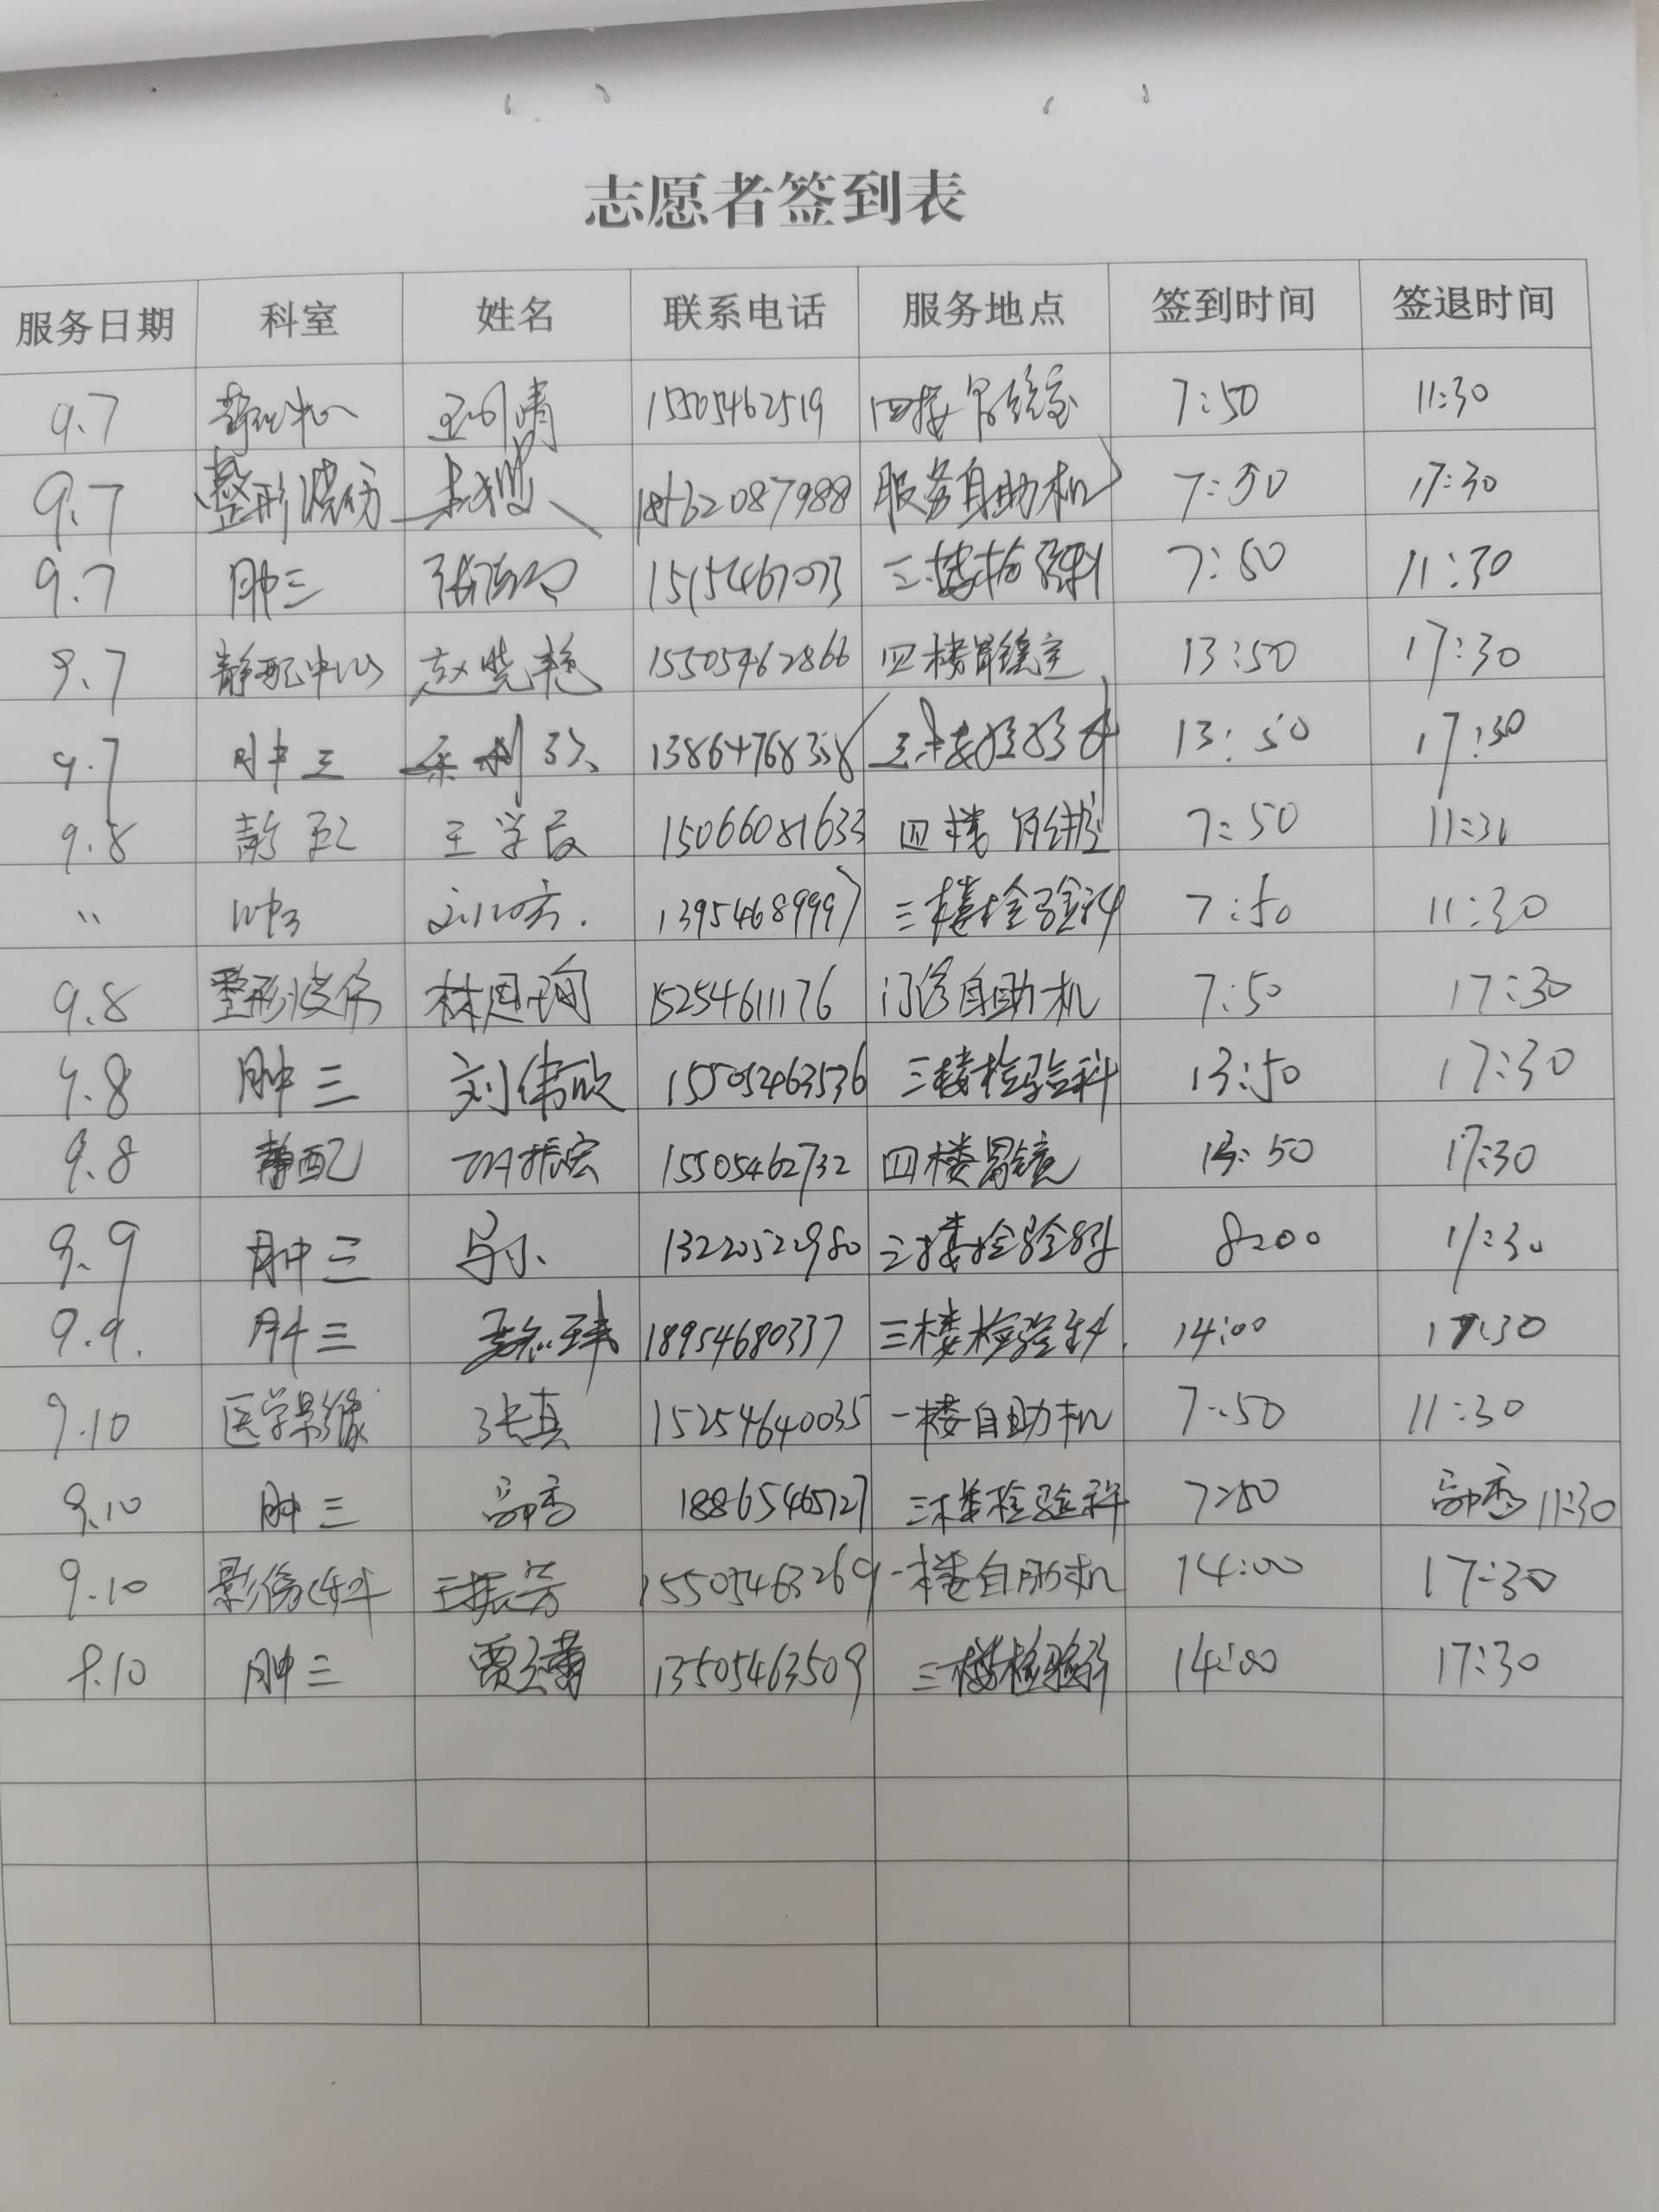 志愿者签到表
服务日期 科室 姓名 联系电话 服务地点 签到时间 签退时间
9.7 15505462519 四楼胃镜室 7:50 11:30
9.7 整形烧伤 服务自助机 7:50 17:30
9.7 肿三 三楼检验科 7:50 11:30
9.7 静配中心 赵晓艳 15505462866 四楼胃镜室 13:50 17:30
9.7 肿三 三楼检验科 13:50 17:30
9.8 静配 王学良 15066081633 四楼 7:50 11:30
" 肿3 13954689997 三楼检验科 7:50 11:30
9.8 整形烧伤 15254611176 门诊自助机 7:50 17:30
9.8 肿三 刘伟欣 15505463536 三楼检验科 13:50 17:30
9.8 静配 15505462732 四楼胃镜 13:50 17:30
9.9 肿三 13220522980 三楼检验科 8:00 11:30
9.9. 肿三 18954680337 三楼检验科 14:00 17:30
9.10 医学影像 张真 15254640035 一楼自助机 7:50 11:30
9.10 肿三 18865465727 三楼检验科 7:50 11:30
9.10 影像科 王振芳 15505463269 一楼自助机 14:00 17:30
9.10 肿三 13505463509 三楼检验科 14:00 17:30